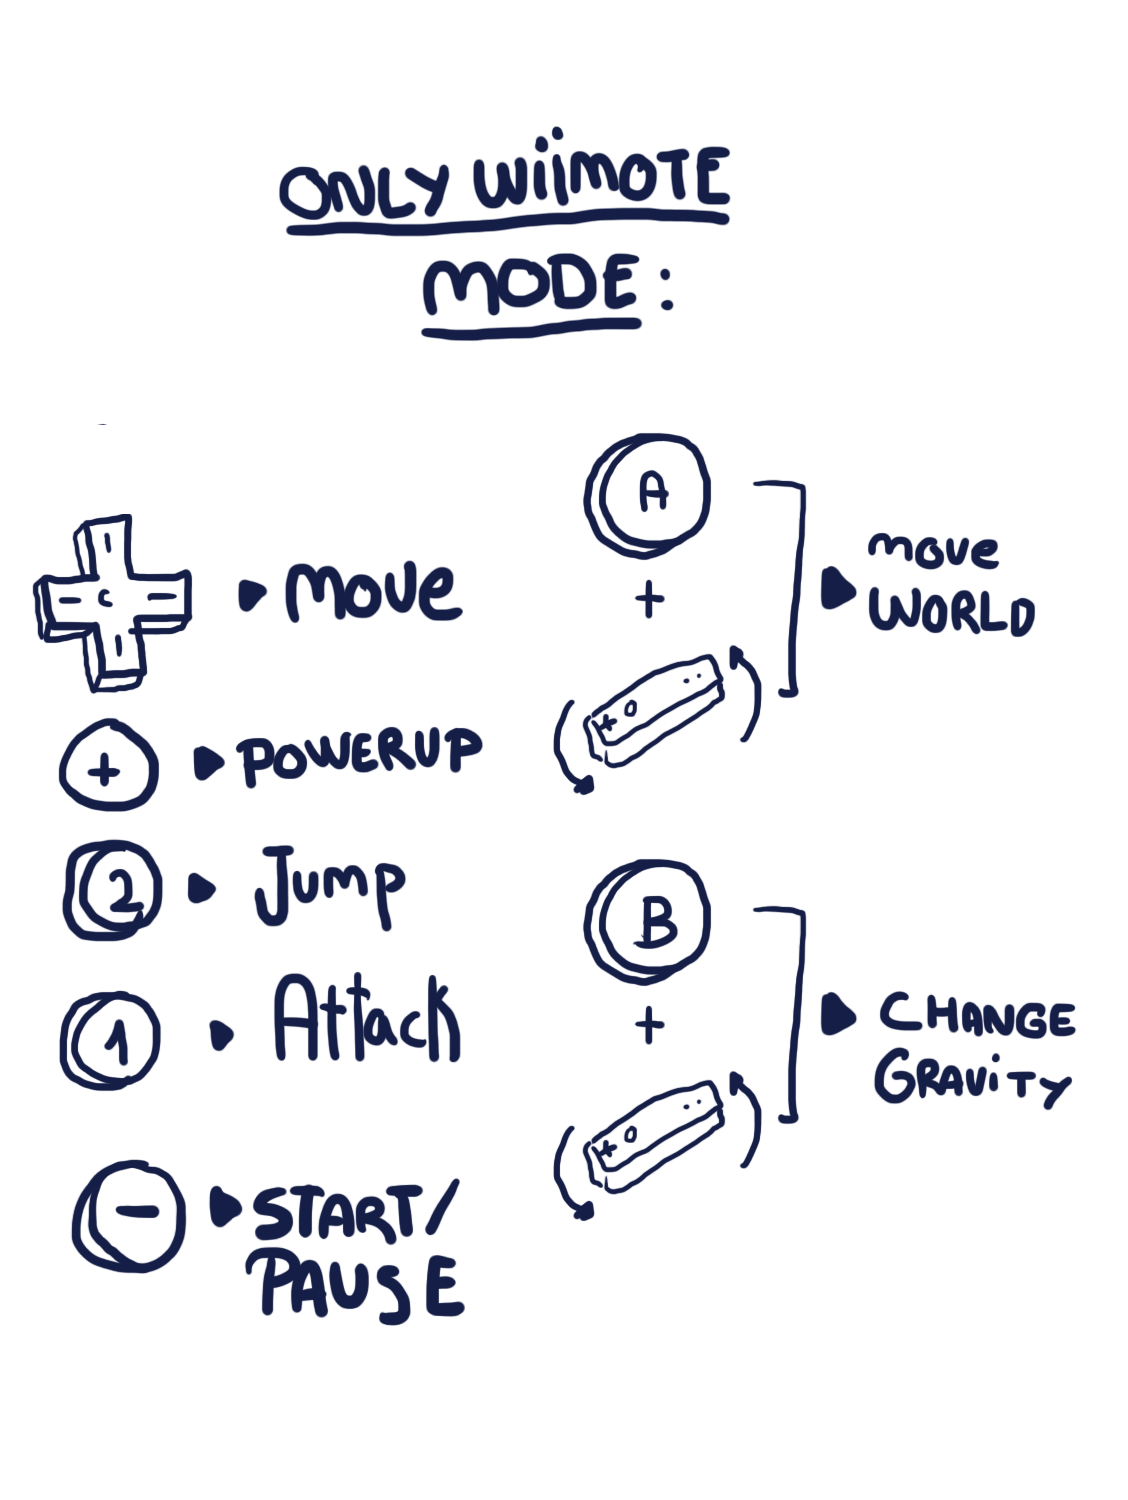 ONLY WIIMOTE
MODE:
MOVE
+
POWERUP
2
Jump
1
Attack
-
START/
PAUSE
A
+
move
WORLD
B
+
CHANGE
GRAViTY